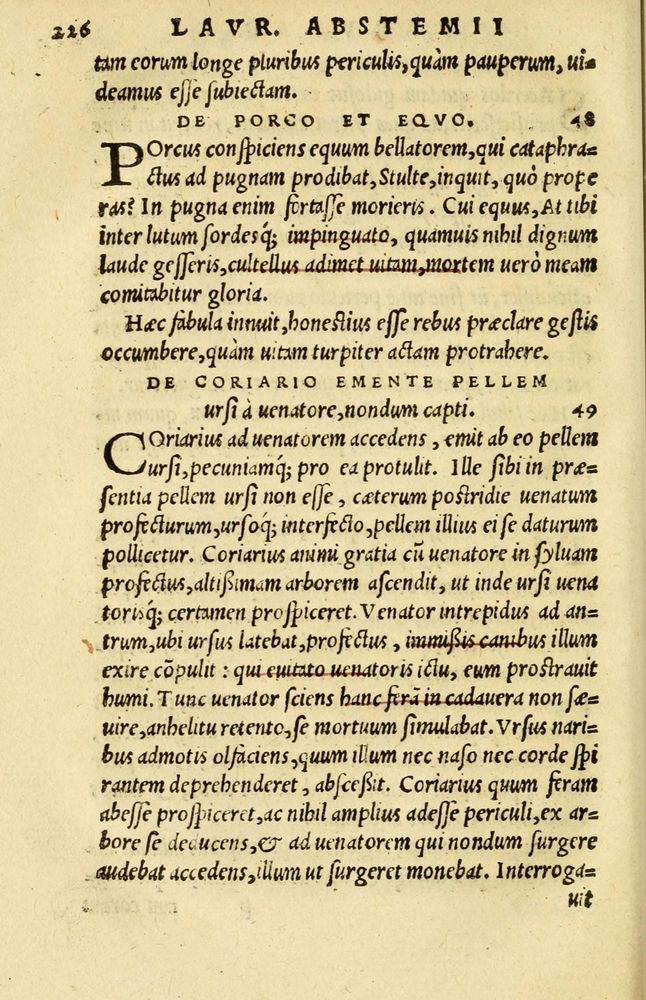 226 LAVR. ABSTEMII
tam eorum longe pluribus periculis, quàm pauperum, ui-
deamus esse subiectam.
DE PORCO ET EQVO. 48
POrcus conspiciens equum bellatorem, qui cataphra-
ctus ad pugnam prodibat, Stulte, inquit, quò prope
ras? In pugna enim fortasse morieris. Cui equus, At tibi
inter lutum sordesq́; impinguato, quamuis nihil dignum
laude gesseris, cultellus adimet uitam, mortem uerò meam
comitabitur gloria.
Hæc fabula innuit, honestius esse rebus præclare gestis
occumbere, quàm uitam turpiter actam protrahere.
DE CORIARIO EMENTE PELLEM
ursi à uenatore, nondum capti. 49
COriarius ad uenatorem accedens, emit ab eo pellem
ursi, pecuniamq́; pro ea protulit. Ille sibi in præ-
sentia pellem ursi non esse, cæterum postridie uenatum
profecturum, ursoq́; interfecto, pellem illius ei se daturum
pollicetur. Coriarius animi gratia cū uenatore in syluam
profectus, altissimam arborem ascendit, ut inde ursi uena
torisq́; certamen prospiceret. Venator intrepidus ad an-
trum, ubi ursus latebat, profectus, immissis canibus illum
exire cōpulit: qui euitato uenatoris ictu, eum prostrauit
humi. Tunc uenator sciens hanc ferā in cadauera non sæ-
uire, anhelitu retento, se mortuum simulabat. Vrsus nari-
bus admotis olfaciens, quum illum nec naso nec corde spi
rantem deprehenderet, abscessit. Coriarius quum feram
abesse prospiceret, ac nihil amplius adesse periculi, ex ar-
bore se deducens, & ad uenatorem qui nondum surgere
audebat accedens, illum ut surgeret monebat. Interroga-
uit